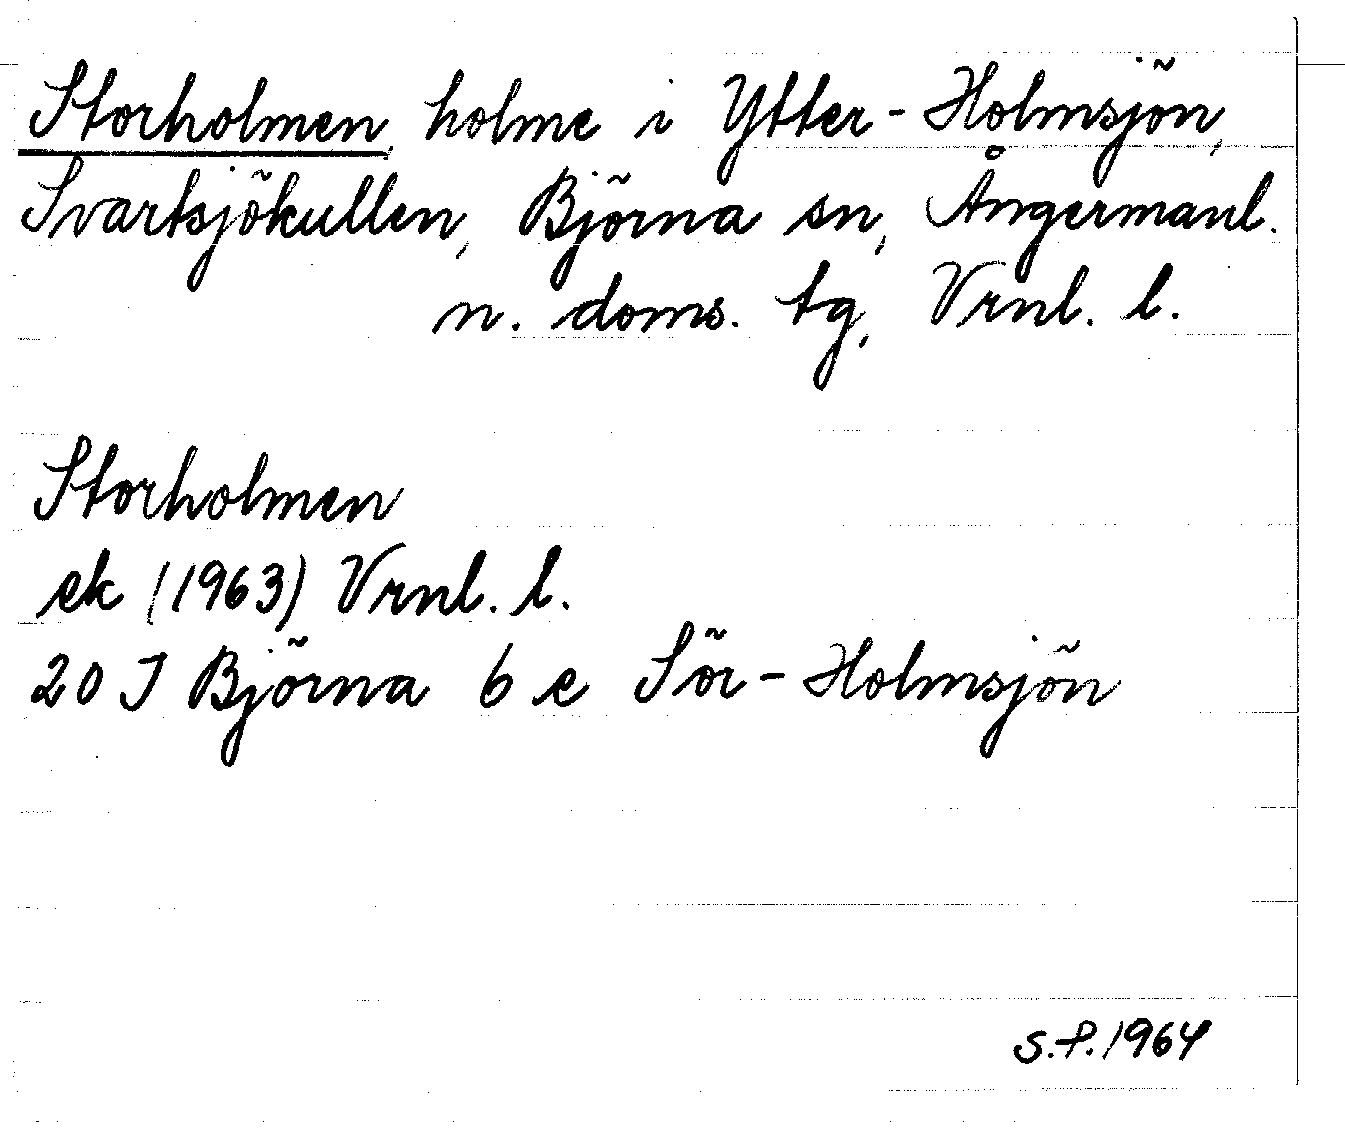 Storholmen, holme i Ytter-Holmsjön,
Svartsjökullen, Björna sn, Ångermanl.
n. doms. tg, Vrnl. l.
Storholmen
ek (1963) Vrnl. l.
20 J Björna 6 e Sör-Holmsjön
S.P. 1964